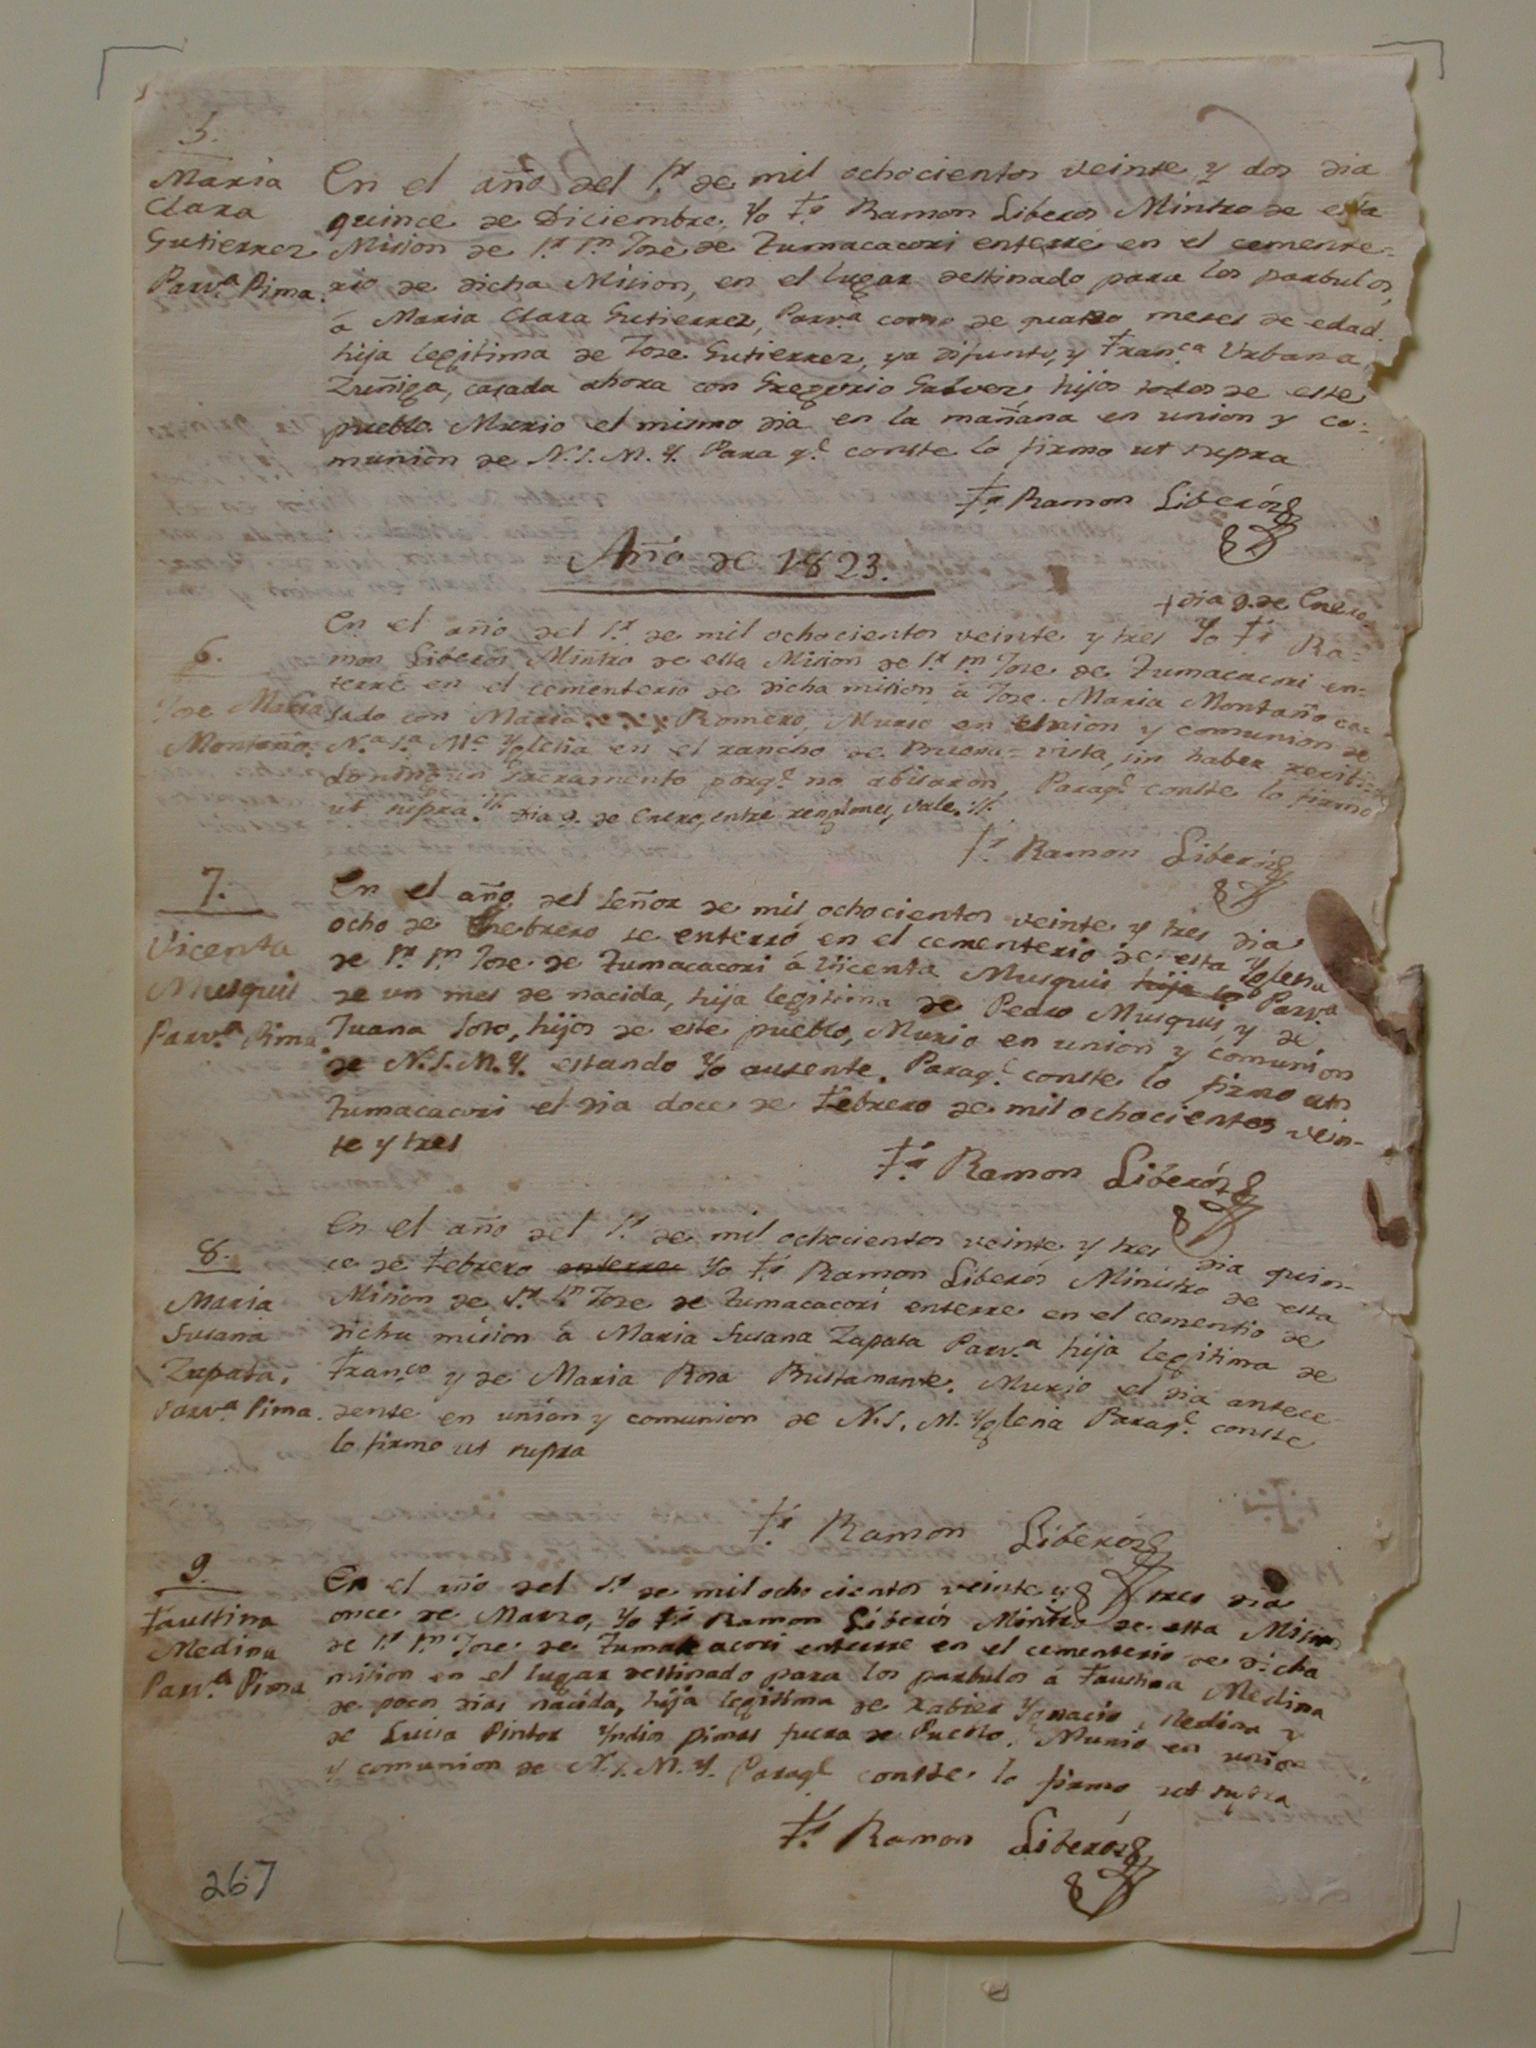 5.
Maria
Clara
Gutierrez
Parv.a Pima.
En el año del S.r de mil ochocientos veinte y dos dia
quince de Diciembre, Yo Fr. Ramon Liberos Mintro de esta
Mision de S.r S.n Jose de Tumacacori enterré en el cemente-
rio de dicha Mision, en el lugar destinado para los parbulos,
á Maria Clara Gutierrez, Parv.a como de quatro meses de edad.
hija legitima de Jose Gutierrez, ya difunto, y Fran.ca Urbana
Zuñiga, casada ahora con Gregorio Galvez, hijos todos de este
pueblo. Murio el mismo dia en la mañana en union y co-
munion de N.S.M.Y. Para q.e conste lo firmo ut supra
Fr. Ramon Liberós
Año de 1823.
+ dia 9. de Enero.
6.
Jose Maria
Montaño.
En el año del S.r de mil ochocientos veinte y tres Yo Fr. Ra-
mon Liberós Mintro de esta Mision de S.r S.n Jose de Tumacacori en-
terré en el cementerio de dicha mision á Jose Maria Montaño ca-
sado con Maria Romero, Murió en union y comunion de
N.a S.a M.e Yglesia en el rancho de Buena-vista, sin haber recibi-
do ningun Sacramento porq.e no abisaron, Paraq.e conste lo firmo
ut supra. Dia 9. de Enero, entre renglones, vale.
Fr. Ramon Liberós
7.
Vicenta
Musquis
Parv.a Pima.
En el año del Señor de mil ochocientos veinte y tres dia
ocho de Febrero se enterró en el cementerio de esta Yglesia
de S.r S.n Jose de Tumacacori á Vicenta Musquis Parv.a
de un mes de nacida, hija legitima de Pedro Musquis y de
Juana Soto, hijos de este pueblo, Murio en union y comunion
de N.S.M.Y. estando Yo ausente. Paraq.e conste lo firmo en
Tumacacori el dia doce de Febrero de mil ochocientos vein-
te y tres
Fr. Ramon Liberós
8.
Maria
Susana
Zapata,
Parv.a Pima.
En el año del S.r de mil ochocientos veinte y tres dia quin-
ce de Febrero enterre Yo Fr. Ramon Liberós Ministro de esta
Mision de S.r S.n Jose de Tumacacori enterre en el cementio de
dicha mision á Maria Susana Zapata Parv.a hija legitima de
Fran.co y de Maria Rosa Bustamante. Murio el dia antece
dente en union y comunion de N.S.M. Yglesia Paraq.e conste
lo firmo ut supra
Fr. Ramon Liberós
9.
Faustina
Medina
Parv.a Pima
En el año del S.r de mil ochocientos veinte y tres dia
once de Marzo, Yo Fr. Ramon Liberós Mintro de esta Mision
de S.r S.n Jose de Tumacacori enterre en el cementerio de dicha
mision en el lugar destinado para los parbulos á Faustina Medina
de pocos dias nacida, hija legitima de Xabier Ygnacio Medina y
de Luisa Pintor Yndios pimas fuera de Pueblo. Murió en union
y comunion de N.S.M.Y. Paraq.e conste lo firmo ut supra
Fr. Ramon Liberós
267